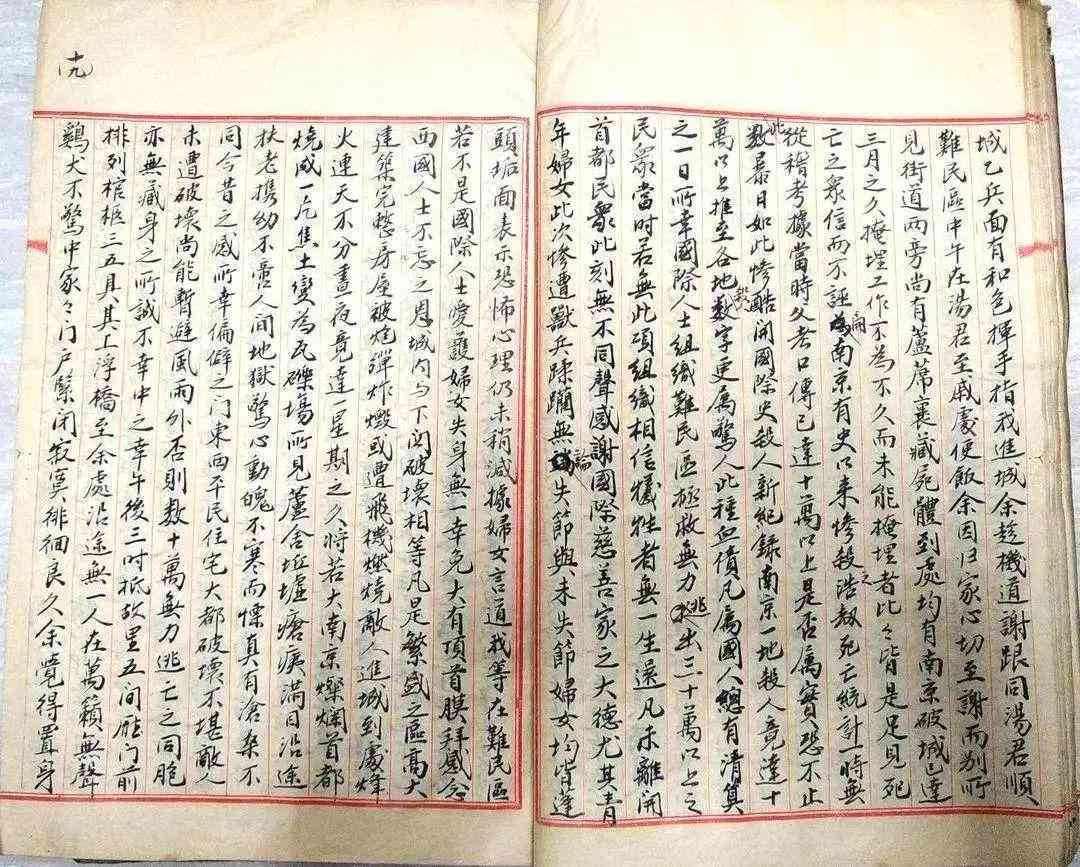 城乙兵面有和色揮手指我進城余趁機道謝跟同湯君順
難民區中午在湯君至戚處便飯余因归家心切至謝而別所
見街道两旁尚有蘆蓆裹藏屍體到處均有南京破城已達
三月之久掩埋工作不為不久而未能掩埋者比々皆是足見死
亡之衆信而不誣南京有史以来惨殺之浩劫死亡統計一時無
從稽考據當時父老口傳已達十萬以上是否属實恐不止
此数暴日如此惨酷開國際史殺人新紀録南京一地殺人竟達十
萬以上推至各地数字更属驚人此種血債凡属國人總有清算
之一日所幸國際人士組織難民區極救無力逃出三十萬以上之
民衆當时若無此項組織相信犠牲者無一生還凡未離開
首都民衆此刻無不同聲感謝國際慈善家之大德尤其青
年婦女此次惨遭獸兵蹂躪無論失節與未失節婦女均皆蓬
頭垢面表示恐怖心理仍未稍減據婦女言道我等在難民區
若不是國際人士愛護婦女失身無一幸免大有頂首膜拜感念
西國人士不忘之恩城内与下関破壞相等凡是繁盛之區高大
建築完整房屋被炮彈炸燬或遭飛機燃燒敵人進城到處烽
火連天不分晝夜竟達一星期之久將若大南京燦爛首都
燒成一片焦土變為瓦礫場所見蘆舍坵墟瘡痍满目沿途
扶老携幼不啻人间地獄驚心動魄不寒而慄真有滄桑不
同今昔之感所幸偏僻之门東西平民住宅大都破壞不堪敵人
未遭破壞尚能暫避風雨外否則数十萬無力逃亡之同胞
亦無藏身之所誠不幸中之幸午後三时抵故里五间廳门前
排列棺柩三五具其上浮橋至余處沿途無一人在萬籟無聲
鷄犬不驚中家々门户緊闭寂寞徘徊良久余覺得置身
十九